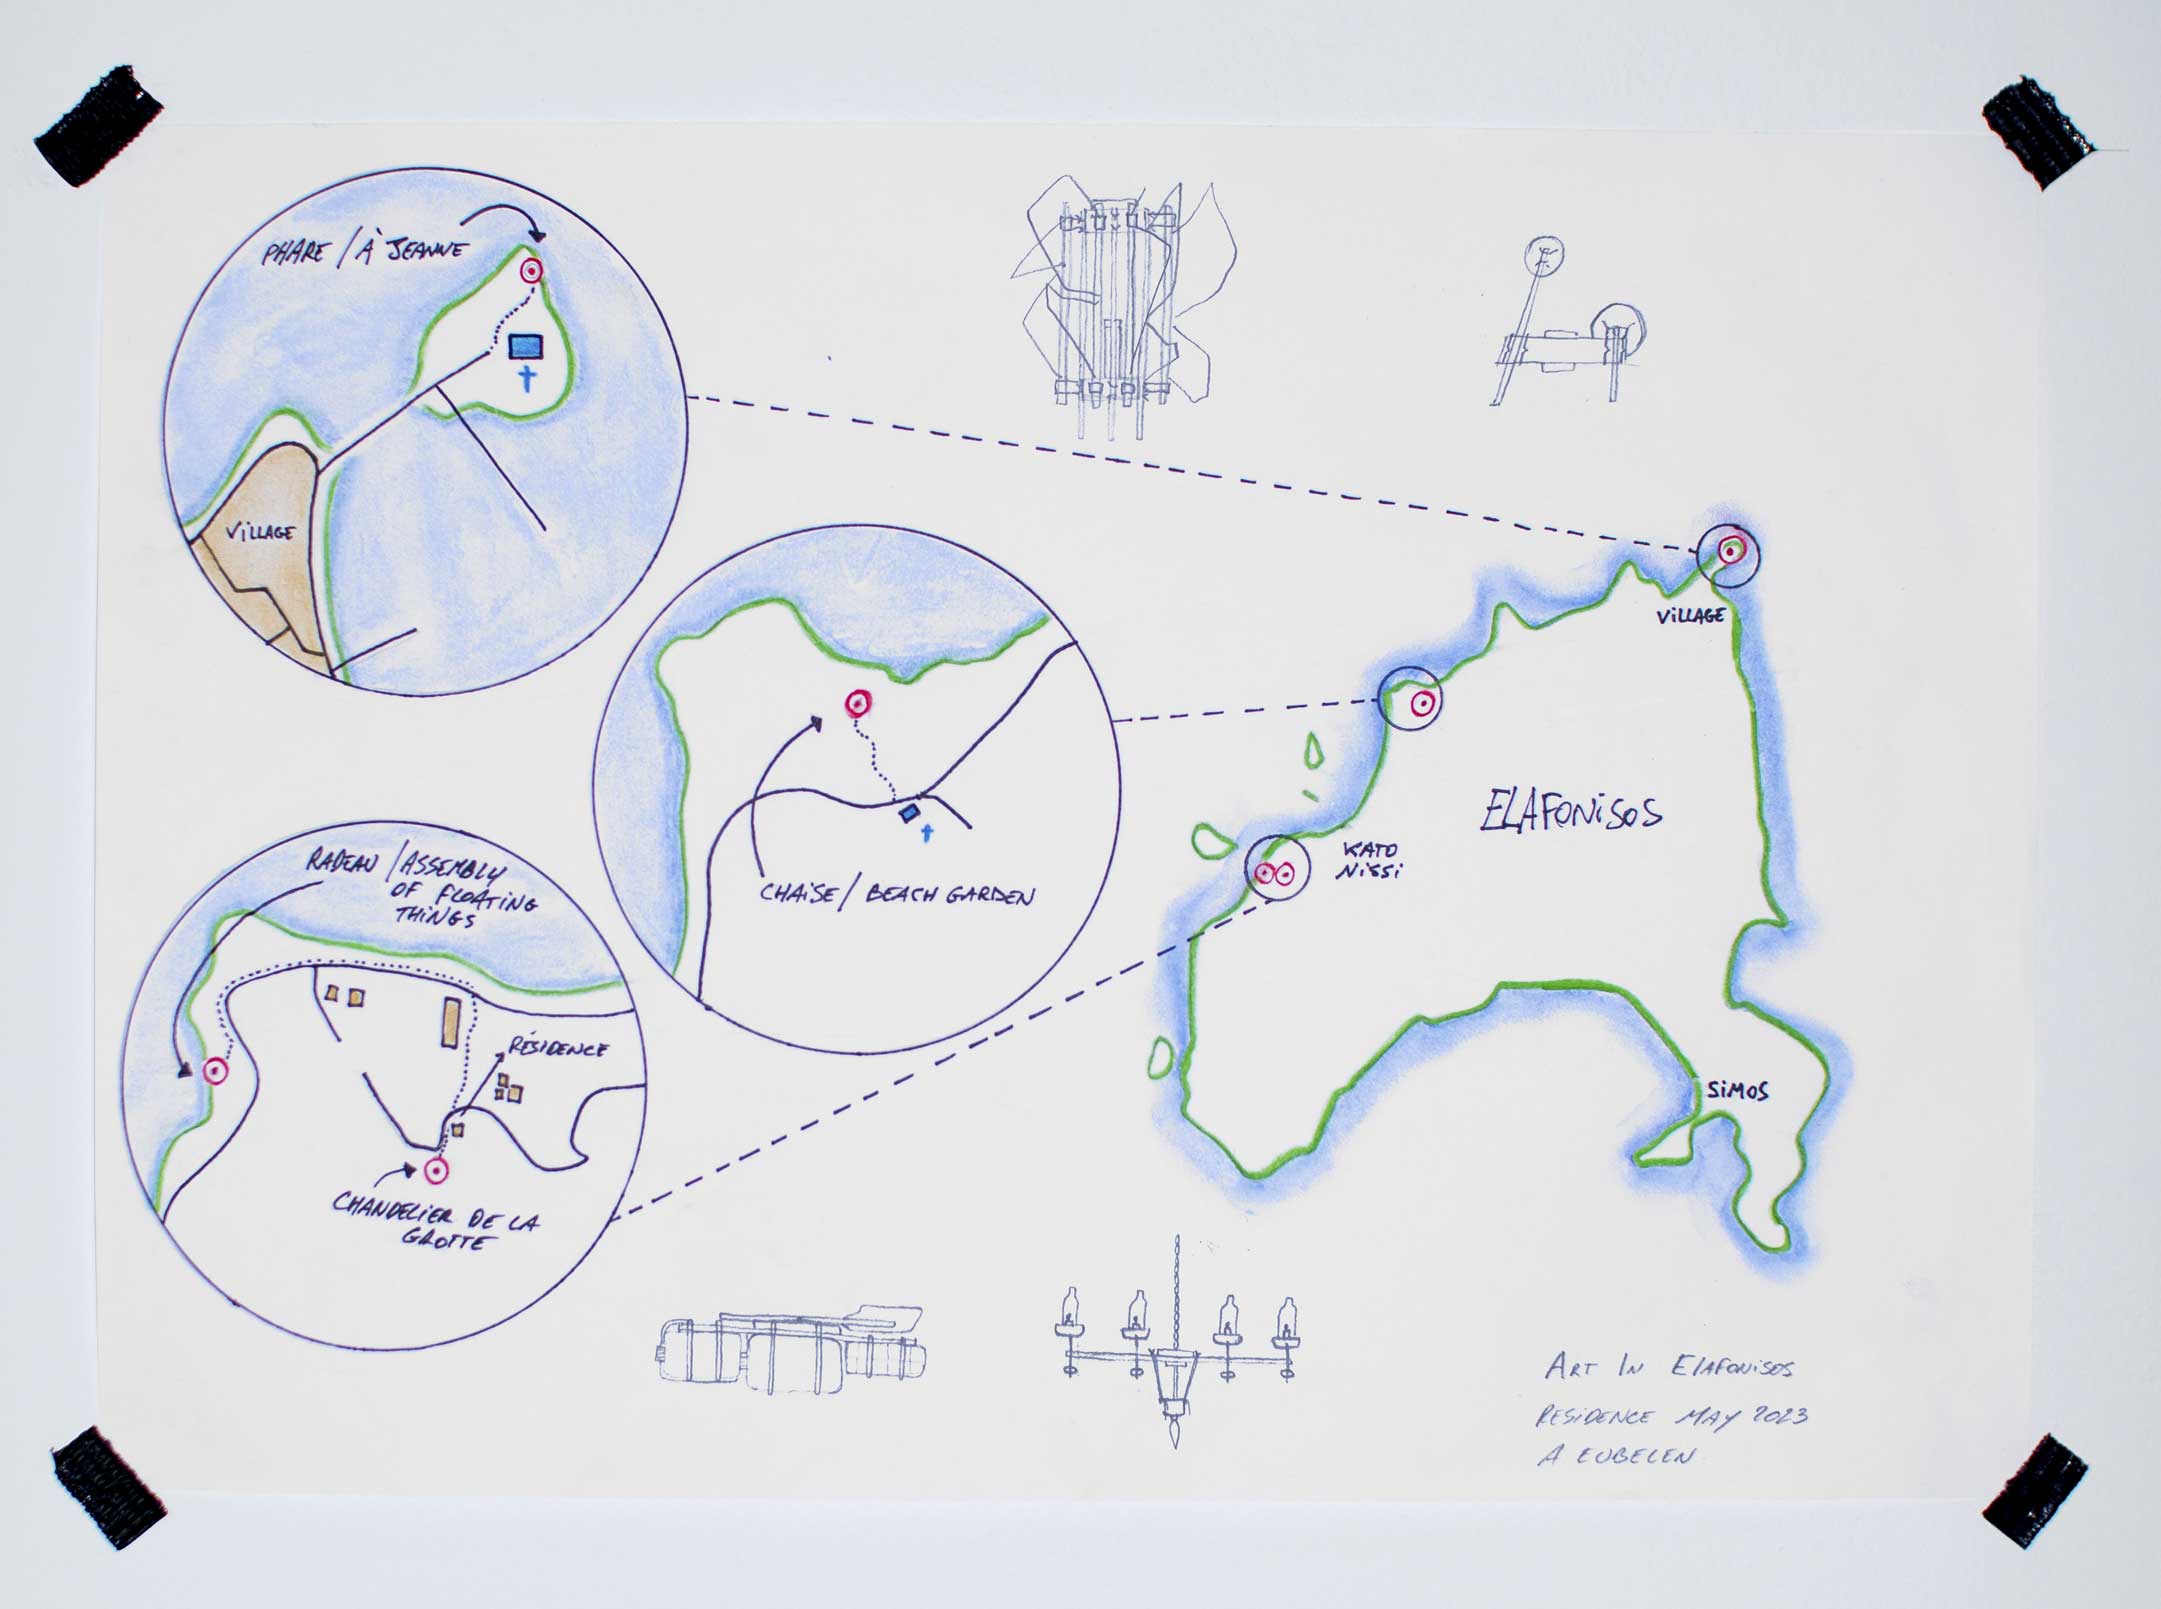 PHARE / À JEANNE
VILLAGE
CHAISE / BEACH GARDEN
RADEAU / ASSEMBLY
OF FLOATING
THINGS
RÉSIDENCE
CHANDELIER DE LA
GROTTE
VILLAGE
ELAFONISOS
KATO
NISSI
SIMOS
ART IN ELAFONISOS
RESIDENCE MAY 2023
A EUBELEN